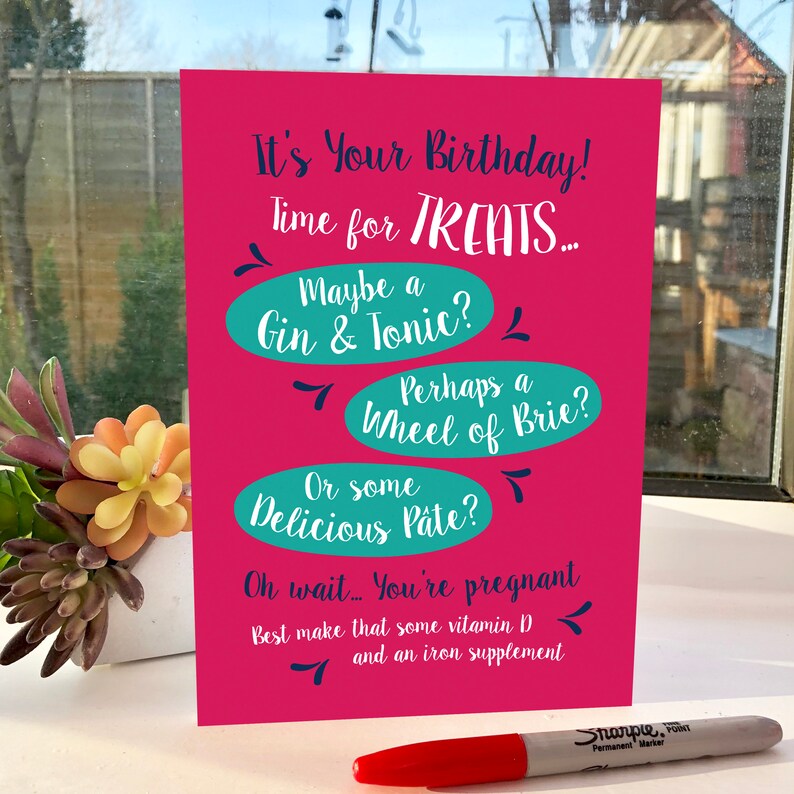 It's Your Birthday!
Time for TREATS...
Maybe a
Gin & Tonic?
Perhaps a
Wheel of Brie?
Or some
Delicious Pâte?
Oh wait... You're pregnant
Best make that some vitamin D
and an iron supplement
Sharpie. FINE POINT
Permanent Marker